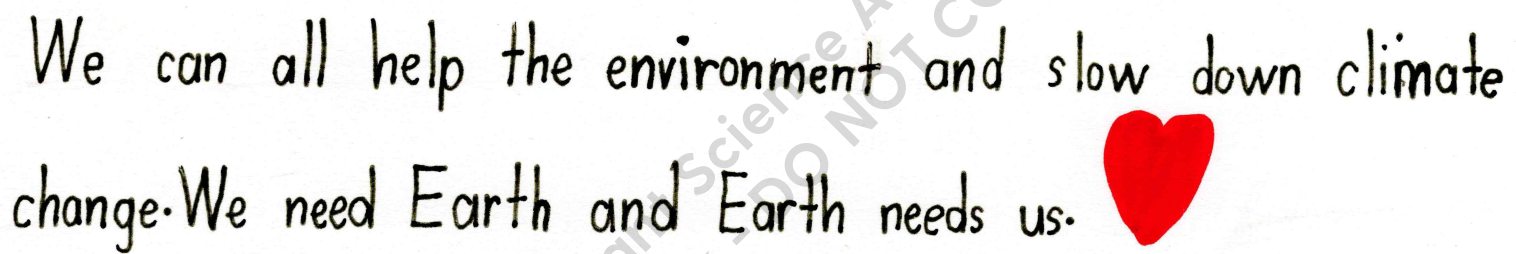 We can all help the environment and slow down climate
change. We need Earth and Earth needs us.
Science
DO NOT